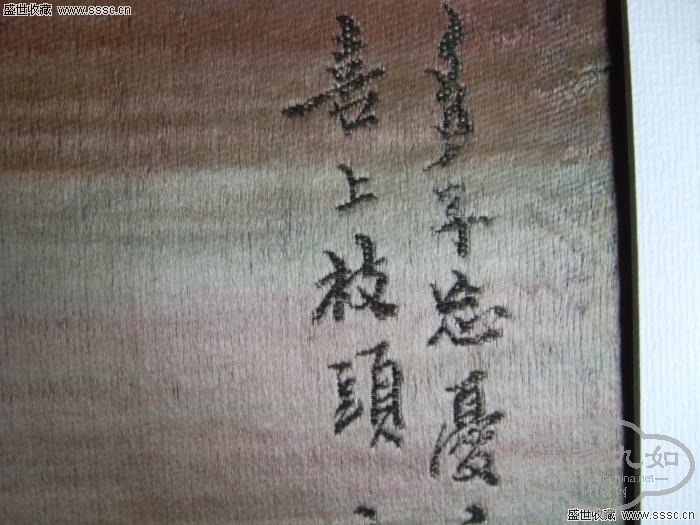 盛世收藏 www.sssc.cn
年忘憂
喜上枝頭
九如
china.net
盛世收藏 www.sssc.cn